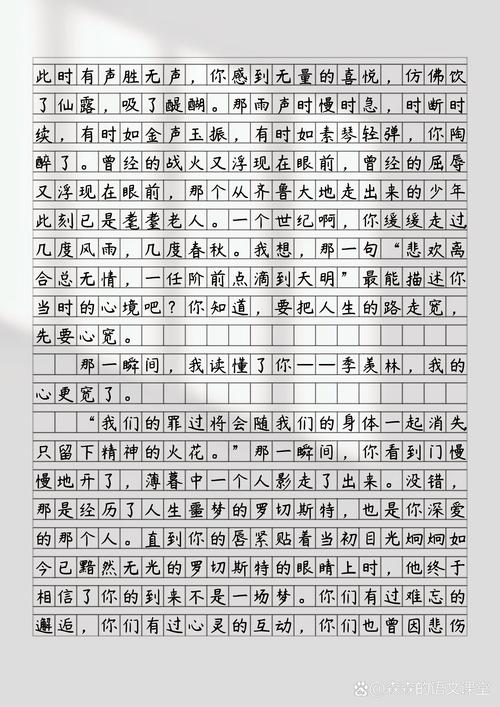 此时有声胜无声，你感到无量的喜悦，仿佛饮
了仙露，吸了醍醐。那雨声时慢时急，时断时
续，有时如金声玉振，有时如素琴轻弹，你陶
醉了。曾经的战火又浮现在眼前，曾经的屈辱
又浮现在眼前，那个从齐鲁大地走出来的少年
此刻已是耄耋老人。一个世纪啊，你缓缓走过
几度风雨，几度春秋。我想，那一句“悲欢离
合总无情，一任阶前点滴到天明”最能描述你
当时的心境吧？你知道，要把人生的路走宽，
先要心宽。
那一瞬间，我读懂了你——季羡林，我的
心更宽了。
“我们的罪过将会随我们的身体一起消失
只留下精神的火花。”那一瞬间，你看到门慢
慢地开了，薄暮中一个人影走了出来。没错，
那是经历了人生噩梦的罗切斯特，也是你深爱
的那个人。直到你的唇紧贴着当初目光炯炯如
今已黯然无光的罗切斯特的眼睛上时，他终于
相信了你的到来不是一场梦。你们有过难忘的
邂逅，你们有过心灵的互动，你们也曾因悲伤
@森森的语文课堂